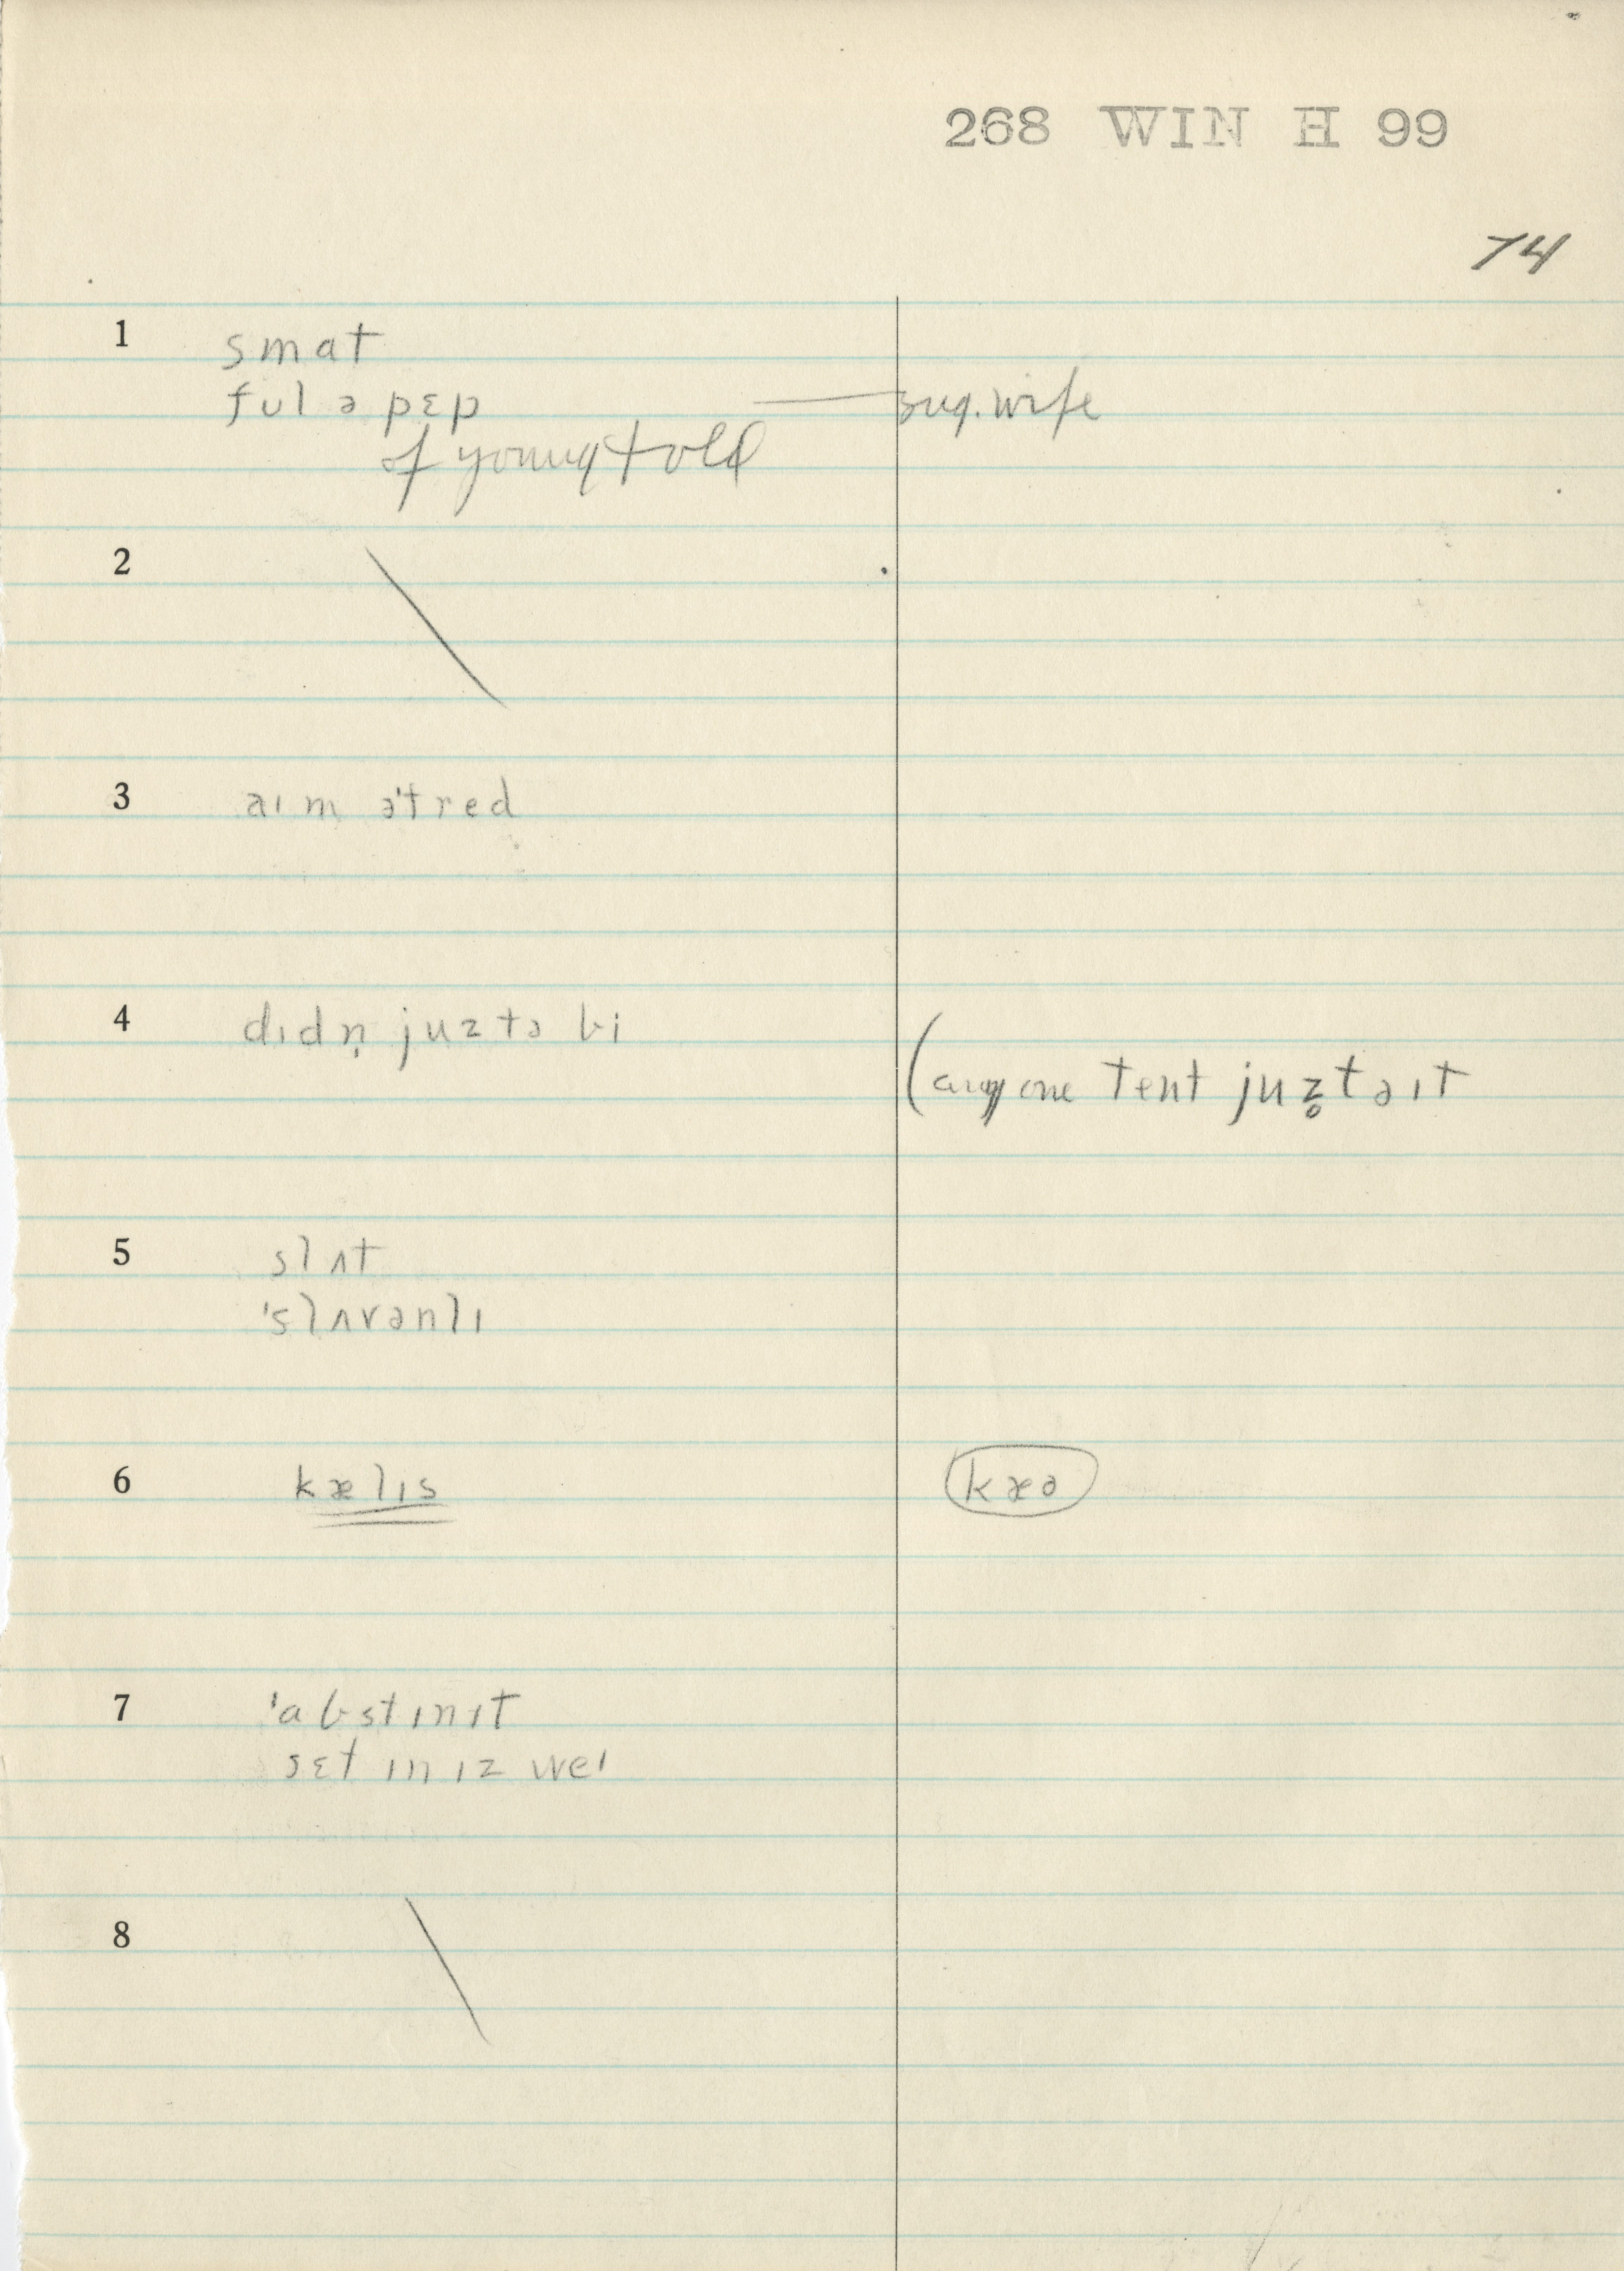 268 WIN H 99
74
1 smat
fʊl ə pɛp — sug. wife
of young + old
2
3 aɪm ə'fred
4 dɪdn̩ juz tə bi
(anyone tent juz̥ tə ɪt
5 slʌt
'slʌvənlɪ
6 kælɪs kæə
7 'abstɪnɪt
sɛt ɪn ɪz weɪ
8